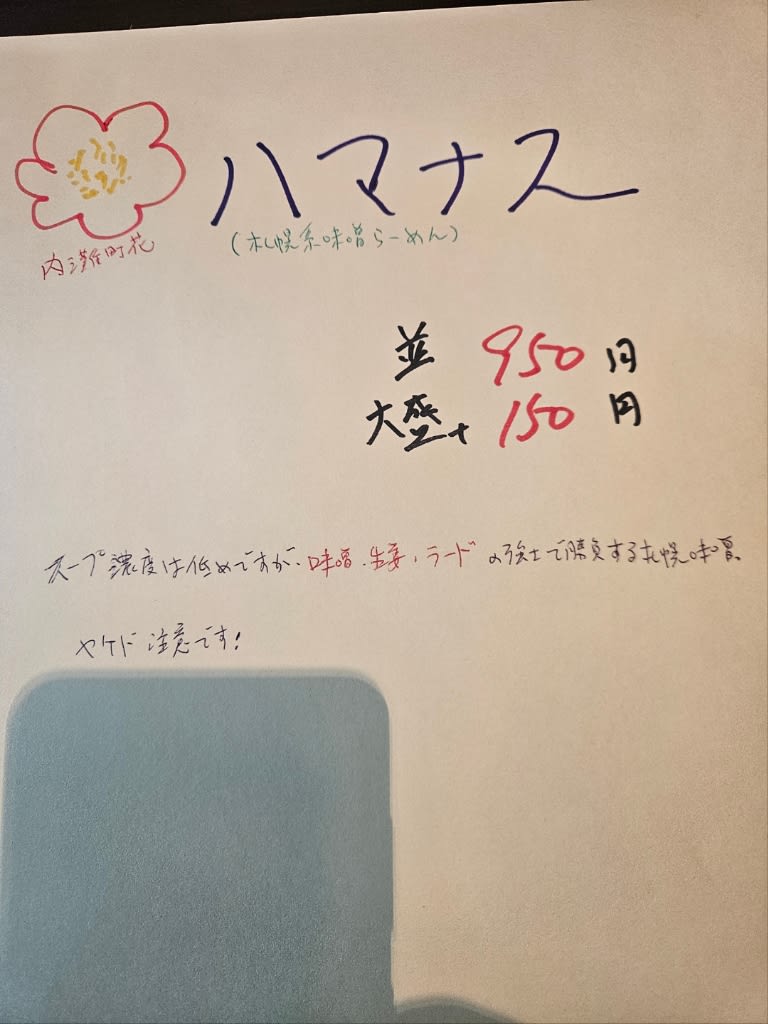 ハマナス
内灘町花
(札幌系味噌らーめん)
並 950円
大盛+ 150円
スープ濃度は低めですが、味噌、生姜、ラードの強さで勝負する札幌味噌。
ヤケド注意です!